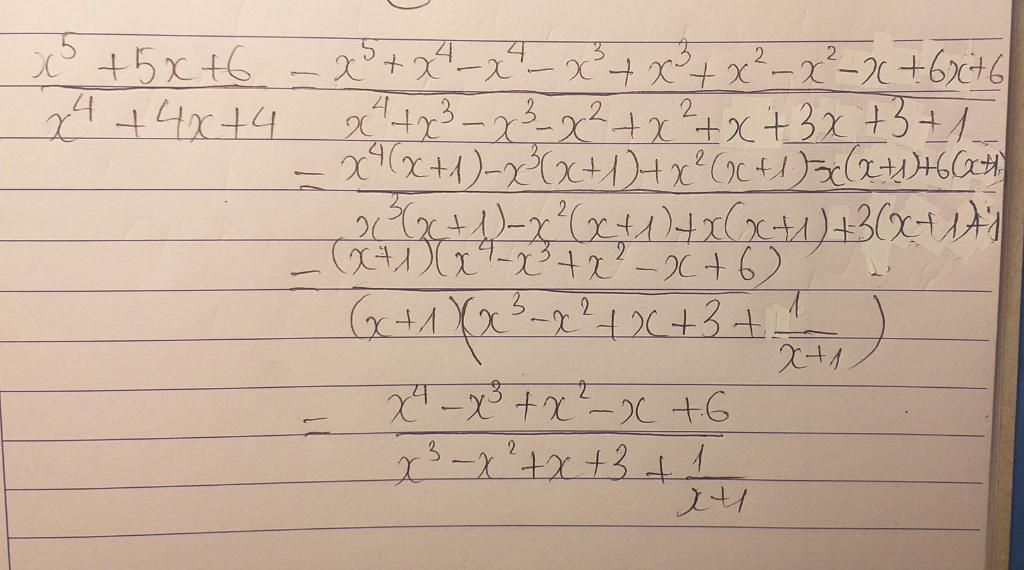 x⁵ + 5x + 6 / x⁴ + 4x + 4 = x⁵ + x⁴ - x⁴ - x³ + x³ + x² - x² - x + 6x + 6 / x⁴ + x³ - x³ - x² + x² + x + 3x + 3 + 1
= x⁴(x+1) - x³(x+1) + x²(x+1) - x(x+1) + 6(x+1) / x³(x+1) - x²(x+1) + x(x+1) + 3(x+1) + 1
= (x+1)(x⁴ - x³ + x² - x + 6) / (x+1)(x³ - x² + x + 3 + 1/x+1)
= x⁴ - x³ + x² - x + 6 / x³ - x² + x + 3 + 1/x+1